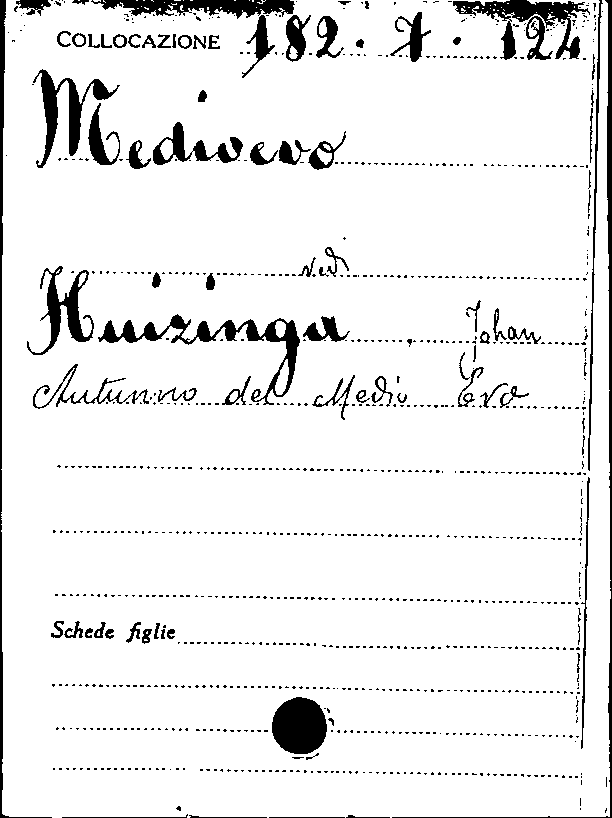 COLLOCAZIONE 182. 7. 124
Medioevo
vedi
Huizinga, Johan
Autunno del Medio Evo
Schede figlie